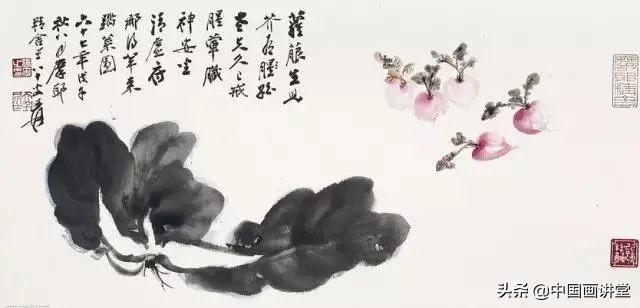 蘿菔生兒
芥有孫
老夫久戒
腥葷臟
神安坐
清虛府
那得羊來
踏菜園
六十七年戊午
秋八月摩耶
精舍八十叟爰
头条 @中国画讲堂